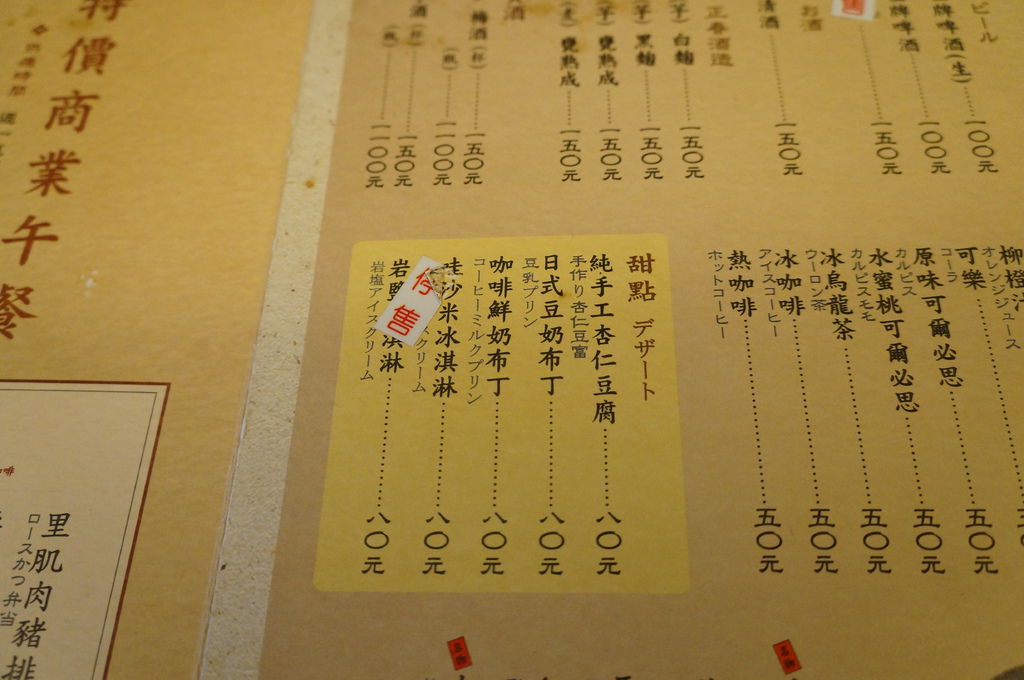 ビール
牌啤酒(生) 一〇〇元
牌啤酒 一〇〇元
一五〇元
售
お酒
清酒 一五〇元
正春酒造
(芋) 白麹 一五〇元
(芋) 黒麹 一五〇元
(芋) 甕熟成 一五〇元
(麦) 甕熟成 一五〇元
酒
梅酒(杯) 一五〇元
(瓶)
酒(杯) 一五〇元
(瓶)
柳橙汁
オレンジジュース
可樂 五〇元
コーラ
原味可爾必思 五〇元
カルピス
水蜜桃可爾必思 五〇元
カルピスモモ
冰烏龍茶 五〇元
ウーロン茶
冰咖啡 五〇元
アイスコーヒー
熱咖啡
ホットコーヒー
甜點 デザート
純手工杏仁豆腐 八〇元
手作り杏仁豆富
日式豆奶布丁 八〇元
豆乳プリン
咖啡鮮奶布丁 八〇元
コーヒーミルクプリン
哇沙米冰淇淋 八〇元
スクリーム
岩鹽 淇淋 八〇元
岩塩アイスクリーム
停售
特價商業午餐
供應時間 週一
咖啡
里肌肉豬排
ロースかつ弁当